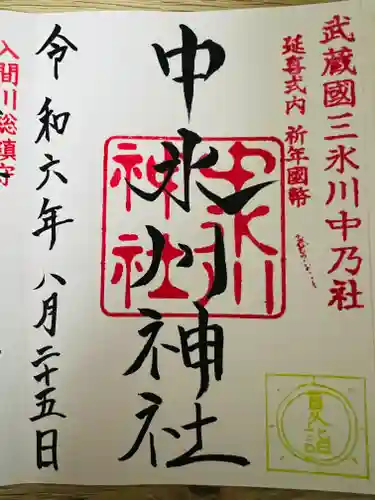 武蔵國三氷川中乃社
延喜式内 祈年國幣
中氷川神社
中氷川
神社
令和六年八月二十五日
入間川総鎮守